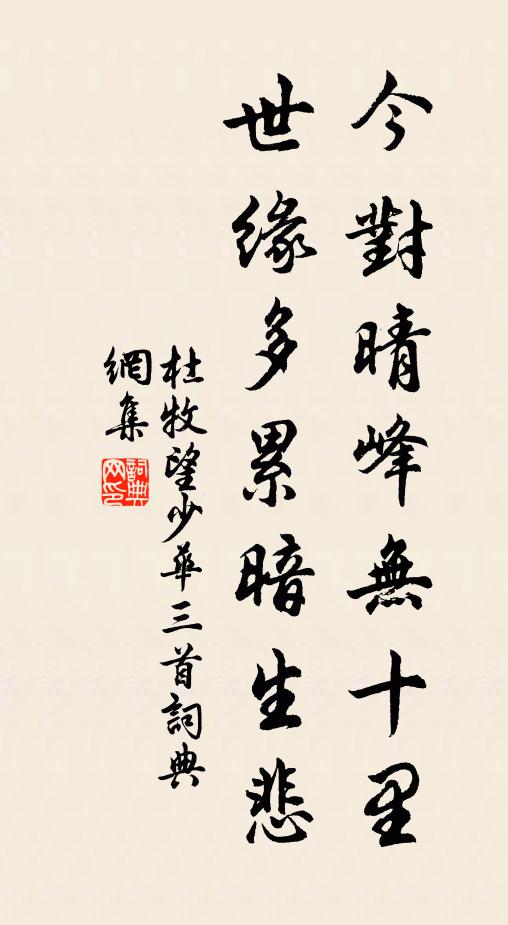 今對晴峰無十里
世緣多累暗生悲
杜牧望少華三首詞典
網集
詞典
网印